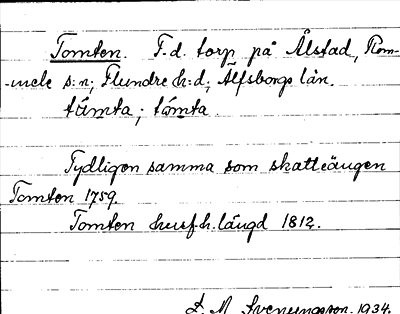 Tomten. F. d. torp på Ålstad, Rom-
-mele s:n; Flundre h:d, Älfsborgs län.
tåmta; tåmta.
Tydligen samma som skatteängen
Tomten 1759.
Tomten husf.h.längd 1812.
D. M. Svenungsson. 1934.